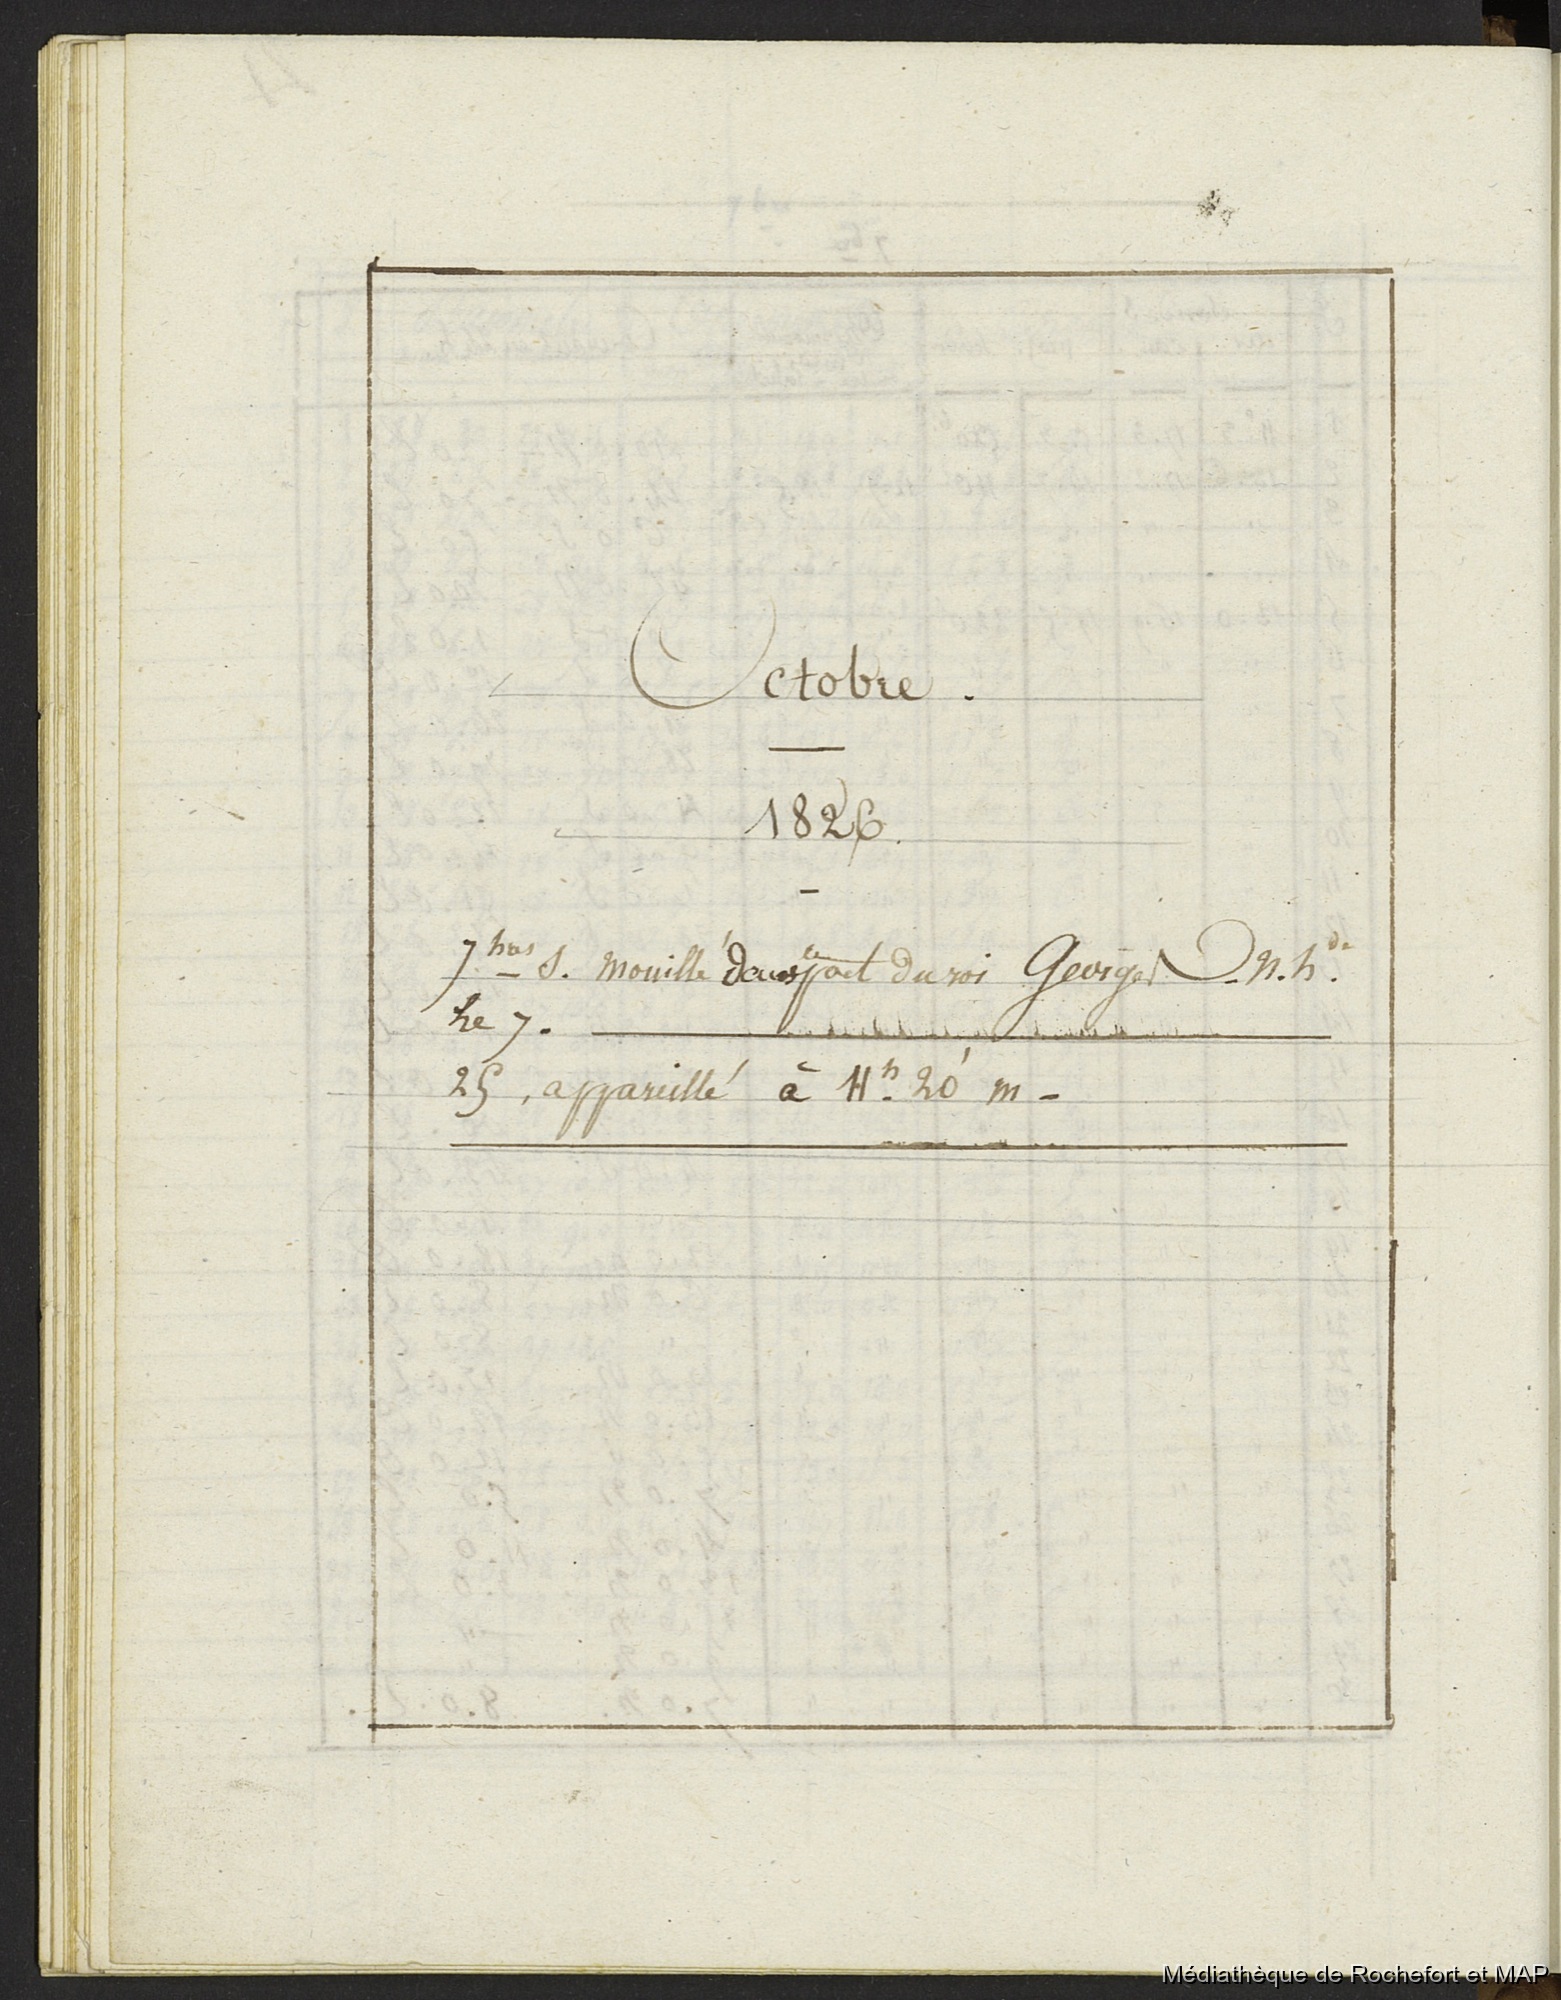 Octobre.
1826.
7 hres S. mouillé dans le port du roi Georges D. N. h. de
Le 7.
25, appareillé à 11 h. 20' m -
Médiathèque de Rochefort et MAP